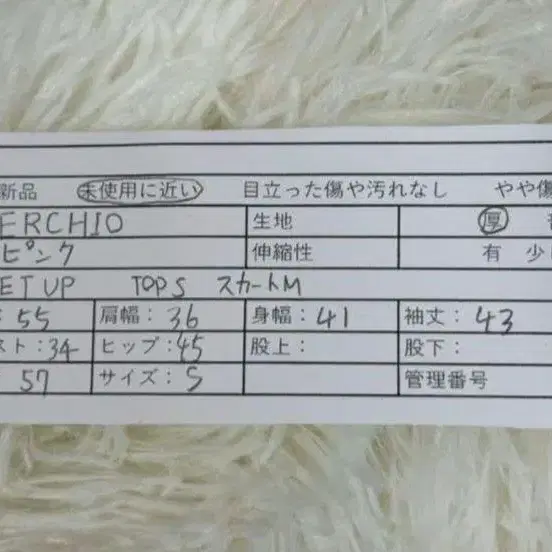 新品 未使用に近い 目立った傷や汚れなし やや傷
ERCHIO 生地 厚
ピンク 伸縮性 有 少
ETUP TOPS スカートM
55 肩幅:36 身幅:41 袖丈:43
スト:34 ヒップ:45 股上: 股下:
57 サイズ:S 管理番号